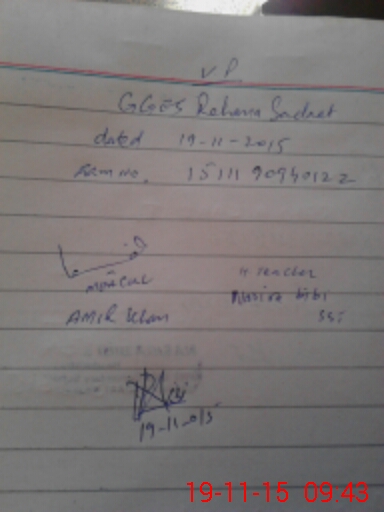 VP
GGES Rehana Sadaat
dated 19-11-2015
1511190940122
MEACUL
AMIR Khan
H Teacher
Nasira bibi
SST
19-11-015
19-11-15 09.43